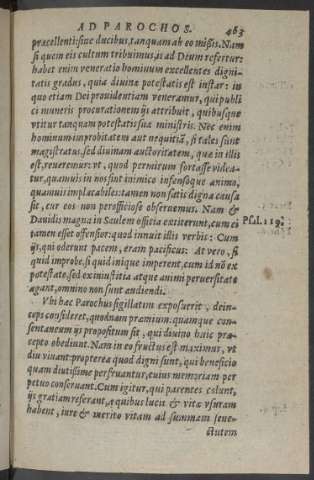 AD PAROCHOS. 463
præcellenti: siue ducibus, tanquam ab eo missis. Nam
si quem eis cultum tribuimus, is ad Deum refertur:
habet enim veneratio hominum excellentes digni-
tatis gradus, quia diuinæ potestatis est instar: in
quo etiam Dei prouidentiam veneramur, qui publi
ci muneris procurationem ijs attribuit, quibusque
vtitur tanquam potestatis suæ ministris. Nec enim
hominum improbitatem aut nequitiã, si tales sunt
magistratus, sed diuinam auctoritatem, quæ in illis
est, reueremur: vt, quod permirum fortasse videa-
tur, quamuis in nos sint inimico infensoque animo,
quamuis implacabiles: tamen non satis digna causa
sit, cur eos non perofficiose obseruemus. Nam &
Dauidis magna in Saulem officia extiterunt, cum ei
tamen esset offensior: quod innuit illis verbis: Cum
ijs, qui oderunt pacem, eram pacificus: At vero, si
quid improbe, si quid inique imperent, cum id nõ ex
potestate, sed ex iniustitia atque animi peruersitate
agant, omnino non sunt audiendi.
Psal. 119.
Vbi hæc Parochus sigillatim exposuerit, dein-
ceps consideret, quodnam præmium: quamque con-
sentaneum ijs propositum sit, qui diuino huic præ-
cepto obediunt. Nam in eo fructus est maximus, vt
diu viuant: propterea quod digni sunt, qui beneficio
quam diutissime perfruantur, cuius memoriam per
petuo conseruant. Cum igitur, qui parentes colunt,
ijs gratiam referant, a quibus lucis & vitæ vsuram
habent, iure & merito vitam ad summam senec-
ctutem